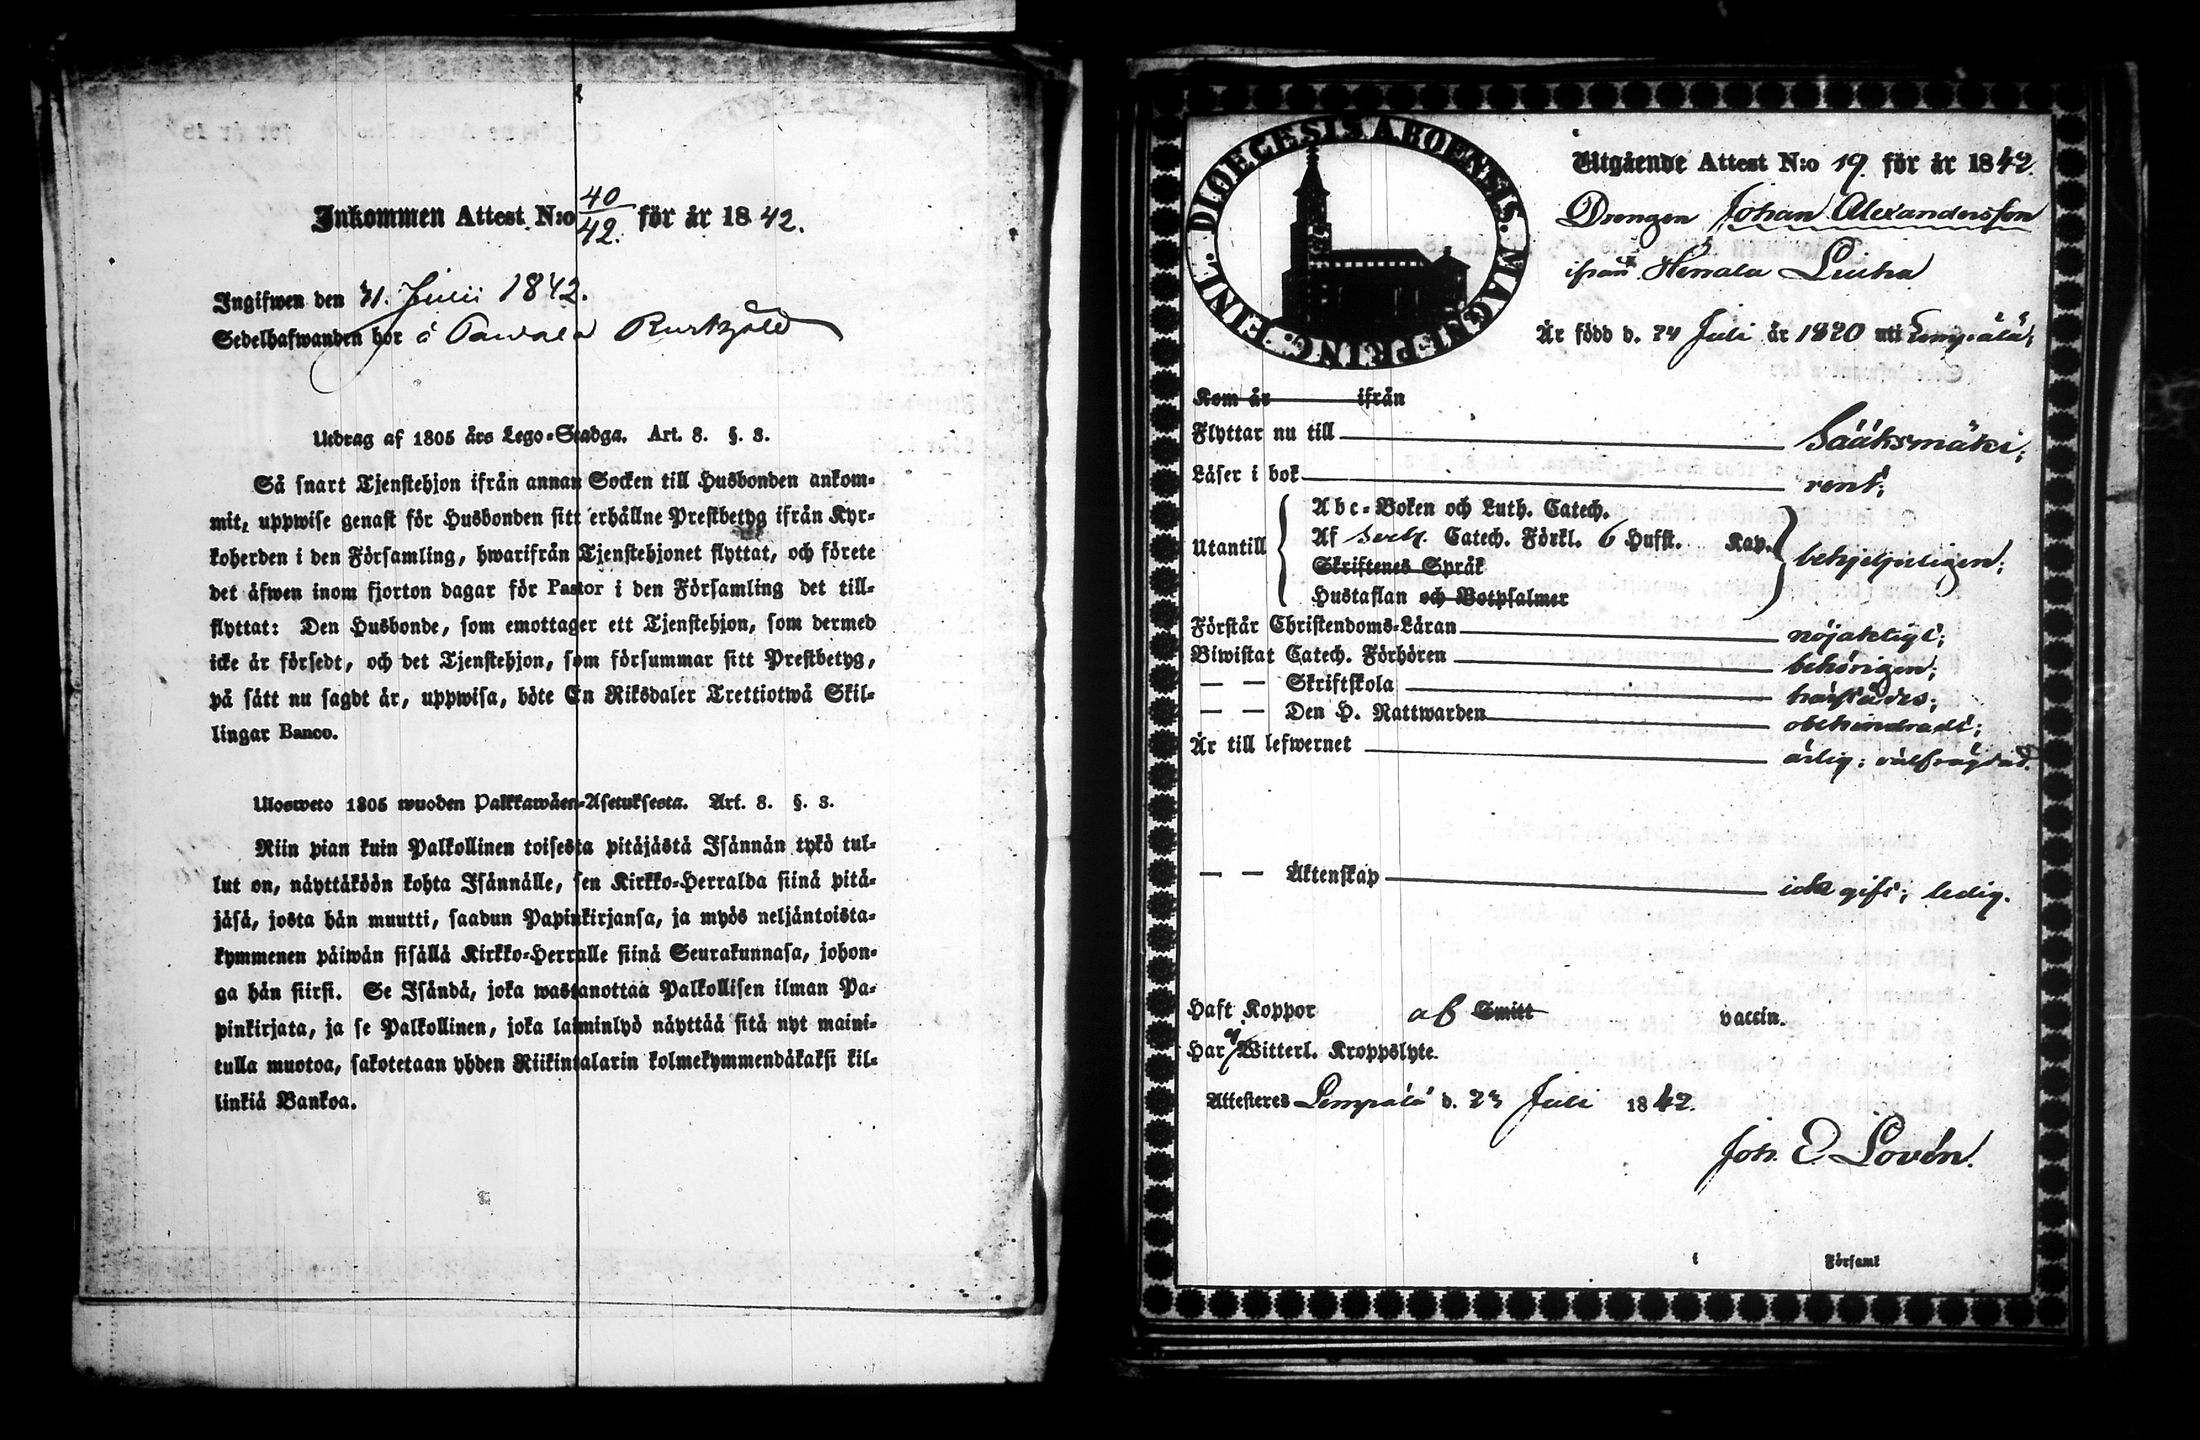 Inkommen Attest N:o 40/42. för år 1842.
Ingifwen den 31. Julii 1842.
Sedelhafwanden bor å
Utdrag af 1805 års Lego-Stadga. Art. 8. §. 8.
Så snart Tjenstehjon ifrån annan Socken till Husbonden ankom-
mit, uppwise genast för Husbonden sitt erhållne Prestbetyg ifrån Kyr-
koherden i den Församling, hwarifrån Tjenstehjonet flyttat, och förete
det äfwen inom fjorton dagar för Pastor i den Församling det till-
flyttat: Den Husbonde, som emottager ett Tjenstehjon, som dermed
icke är försedt, och det Tjenstehjon, som försummar sitt Prestbetyg,
på sätt nu sagdt är, uppwisa, böte En Riksdaler Trettiotwå Skil-
lingar Banco.
Ulosweto 1805 wuoden Palkkawäen-Asetuksesta. Art. 8. §. 8.
Niin pian kuin Palkollinen toisesta pitäjästä Isännän tykö tul-
lut on, näyttäköön kohta Isännälle, sen Kirkko-Herralda siinä pitä-
jäsä, josta hän muutti, saadun Papinkirjansa, ja myös neljäntoista-
kymmenen päiwän sisällä Kirkko-Herralle siinä Seurakunnasa, johon-
ga hän siirsi. Se Isändä, joka wastanottaa Palkollisen ilman Pa-
pinkirjata, ja se Palkollinen, joka laiminlyö näyttää sitä nyt maini-
tulla muotoa, sakotetaan yhden Riikintalarin kolmekymmendäkaksi kil-
linkiä Bankoa.
DIOECESIS ABOENSIS. MAGNI PRINC. FINL.
Utgående Attest N:o 19. för år 1842.
Drengen Johan Alexandersson
ifrån Herrala Liuha
Är född d. 24 Juli år 1820 uti Lempälä;
Kom år ifrån
Flyttar nu till Sääksmäki;
Läser i bok rent;
Utantill
Abc-Boken och Luth. Catech.
Af Catech. Förkl. 6 Hufst. Kap.
Skriftenes Språk
Hustaflan och Botpsalmer
behjelpeligen;
Förstår Christendoms-Läran nöjaktigt;
Biwistat Catech. Förhören behörigen;
— — Skriftskola
— — Den H. Nattwarden obehindradt;
Är till lefwernet ärlig; välfrägdad.
— — Äktenskap icke gift; ledig.
Haft Koppor af Smitt vaccin.
Har ej Witterl. Kroppslyte.
Attesteres Lempälä d. 23 Juli 1842.
Joh. E. Lovén.
i Församl